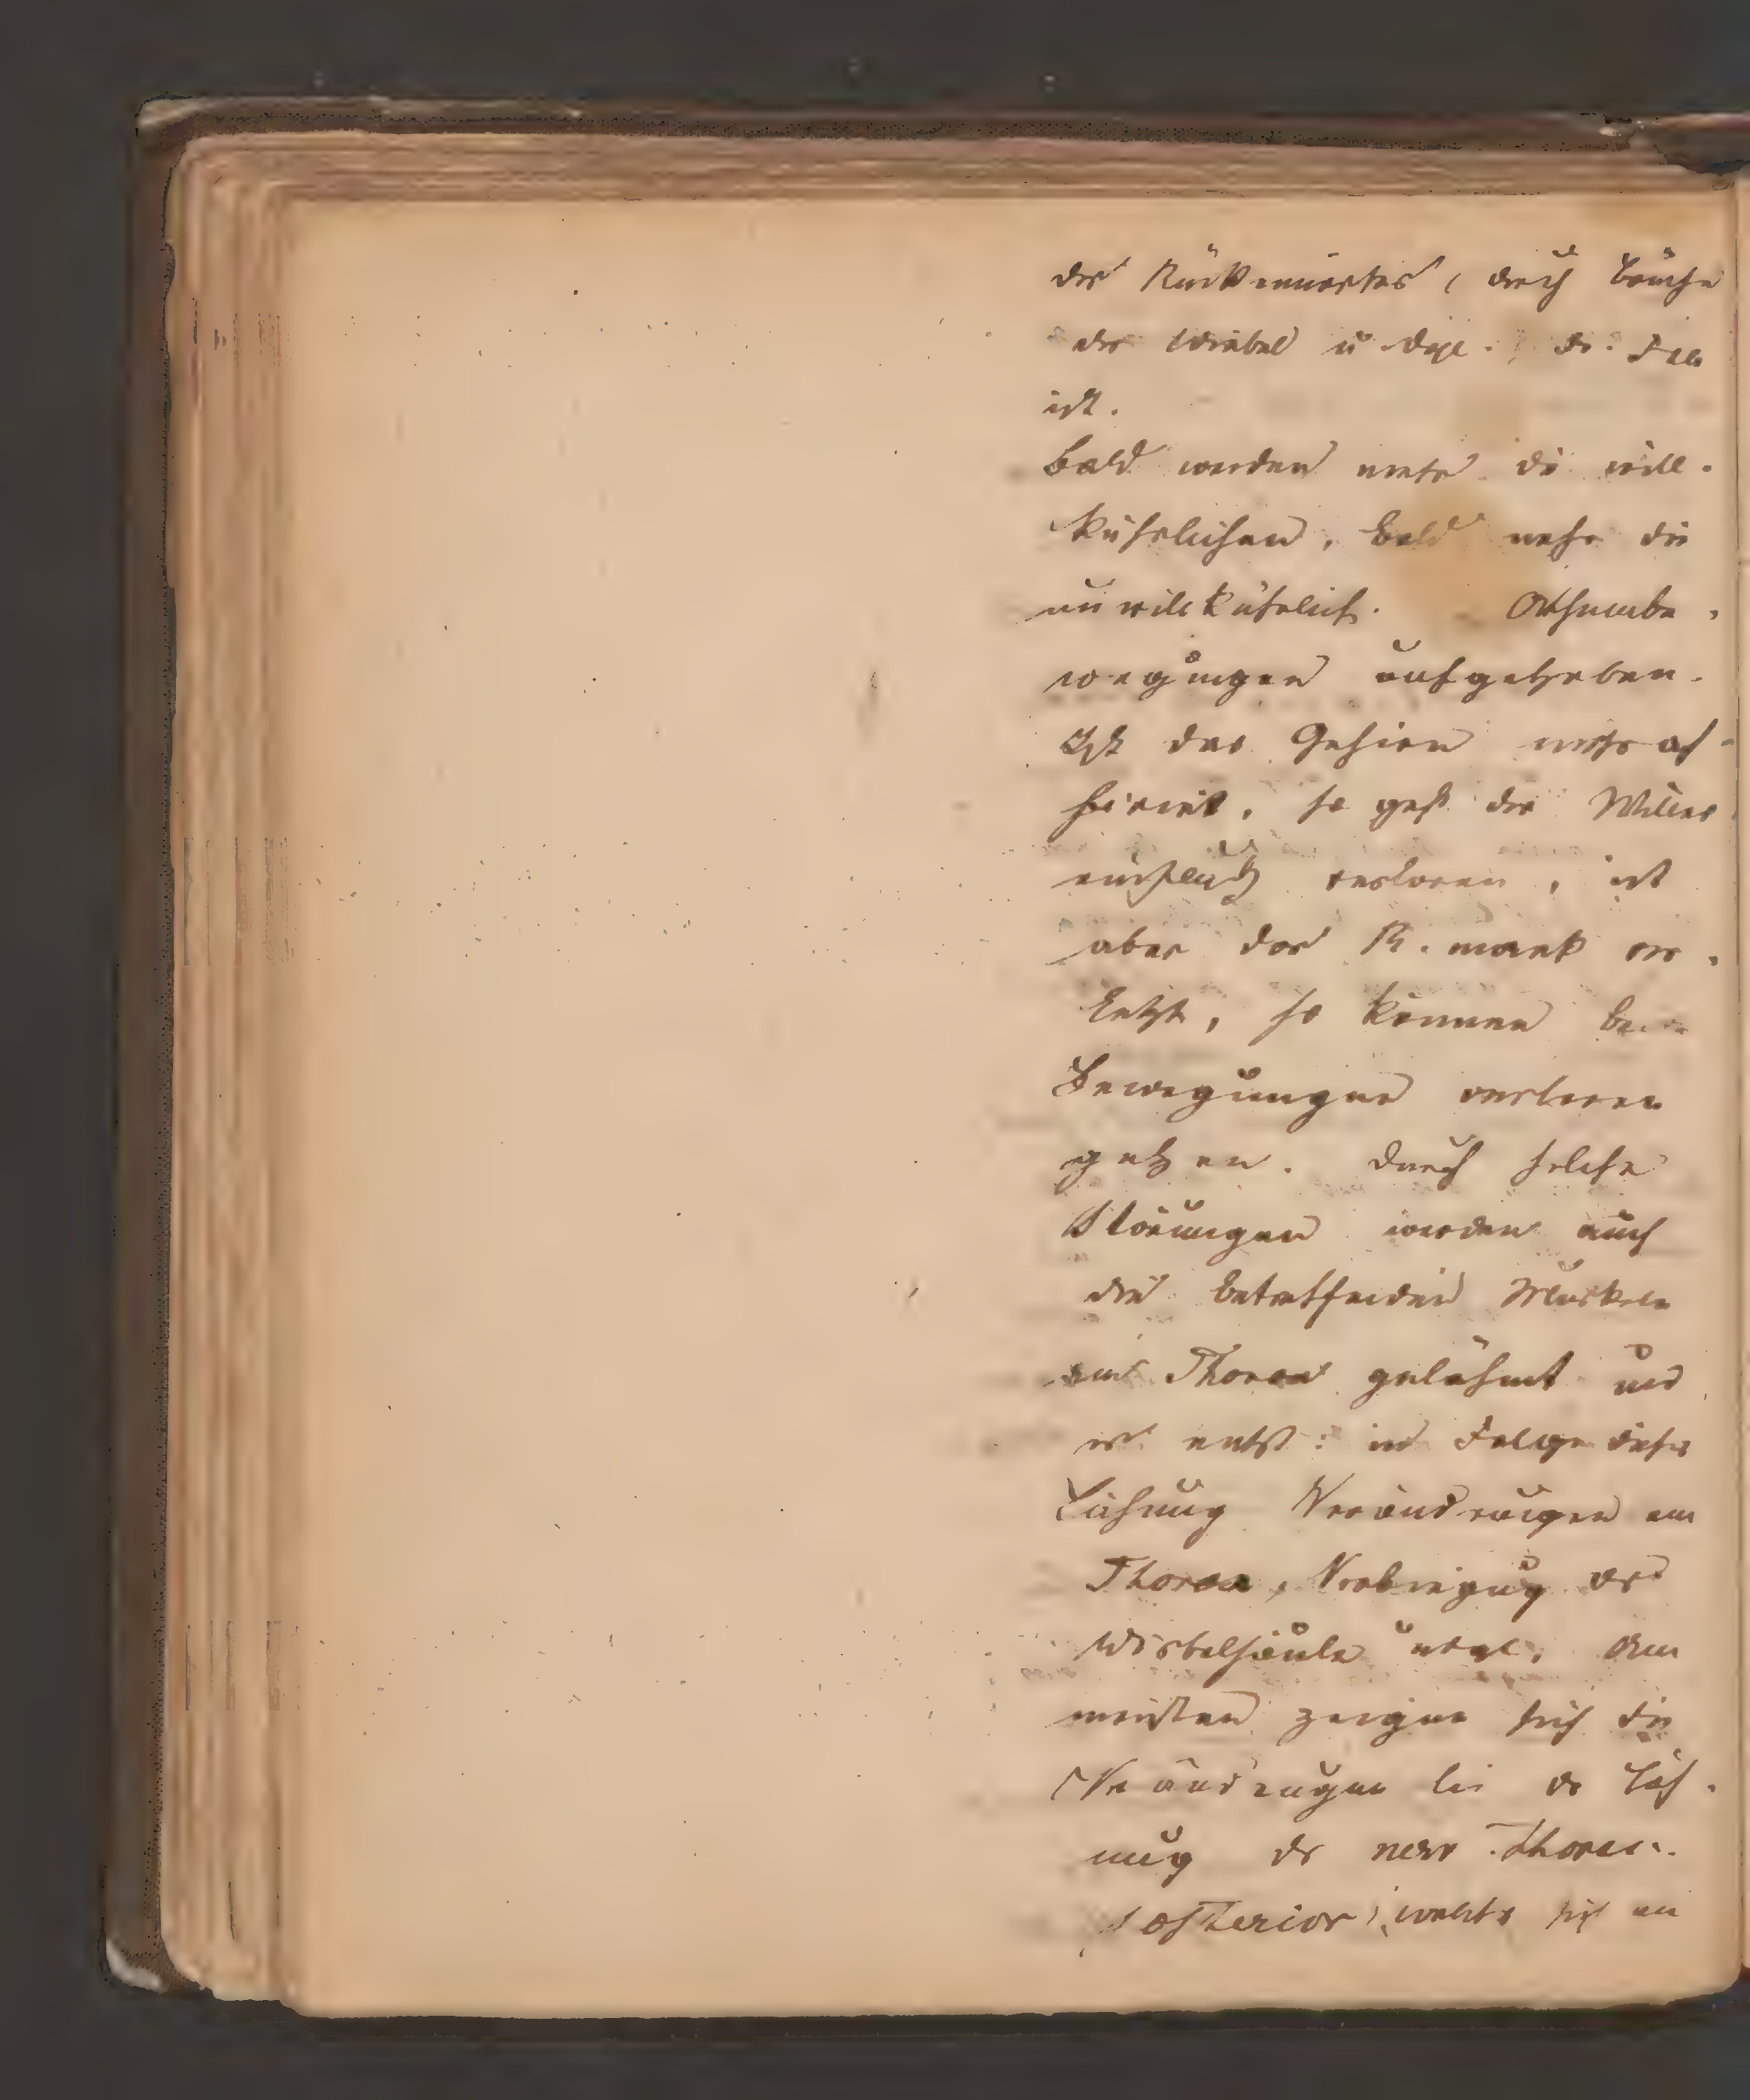 des Rückenmarkes (durch Brüche
der Wirbel u dgl. der Fall
ist.
Bald werden mehr die will-
kührlichen, bald mehr die
unwillkührlich. Athembe-
wegungen aufgehoben.
Ist das Gehirn mehr af-
ficirt, so geht der Willens
verloren, ist
aber das R. mark ver-
letzt, so können
Bewegungen verloren
gehen. Durch solche
Störungen werden auch
die betreffenden Muskeln
am Thorax gelähmt und
es entst: in Folge dieser
Lähmung Verändrungen am
Thorax, Verbiegung der
Wirbelsäule udgl. Am
meisten zeigen sich die
Verändrungen bei der Läh-
mung der nerv. thorac.
posterior, welche sich an